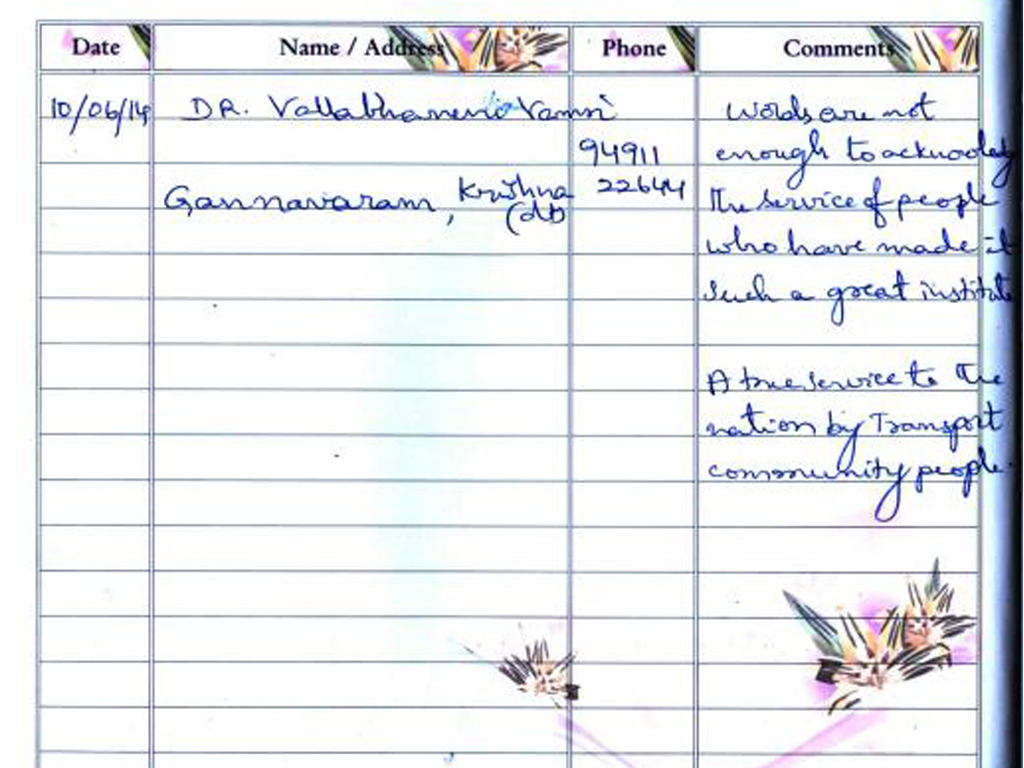 Date Name / Address Phone Comments
10/06/14 DR. Vallabhaneni Vamsi Words are not
94911 enough to acknowledg
Gannavaram, Krishna 22644 the service of people
(dt) who have made it
such a great institute
A true service to the
nation by Transport
community people.